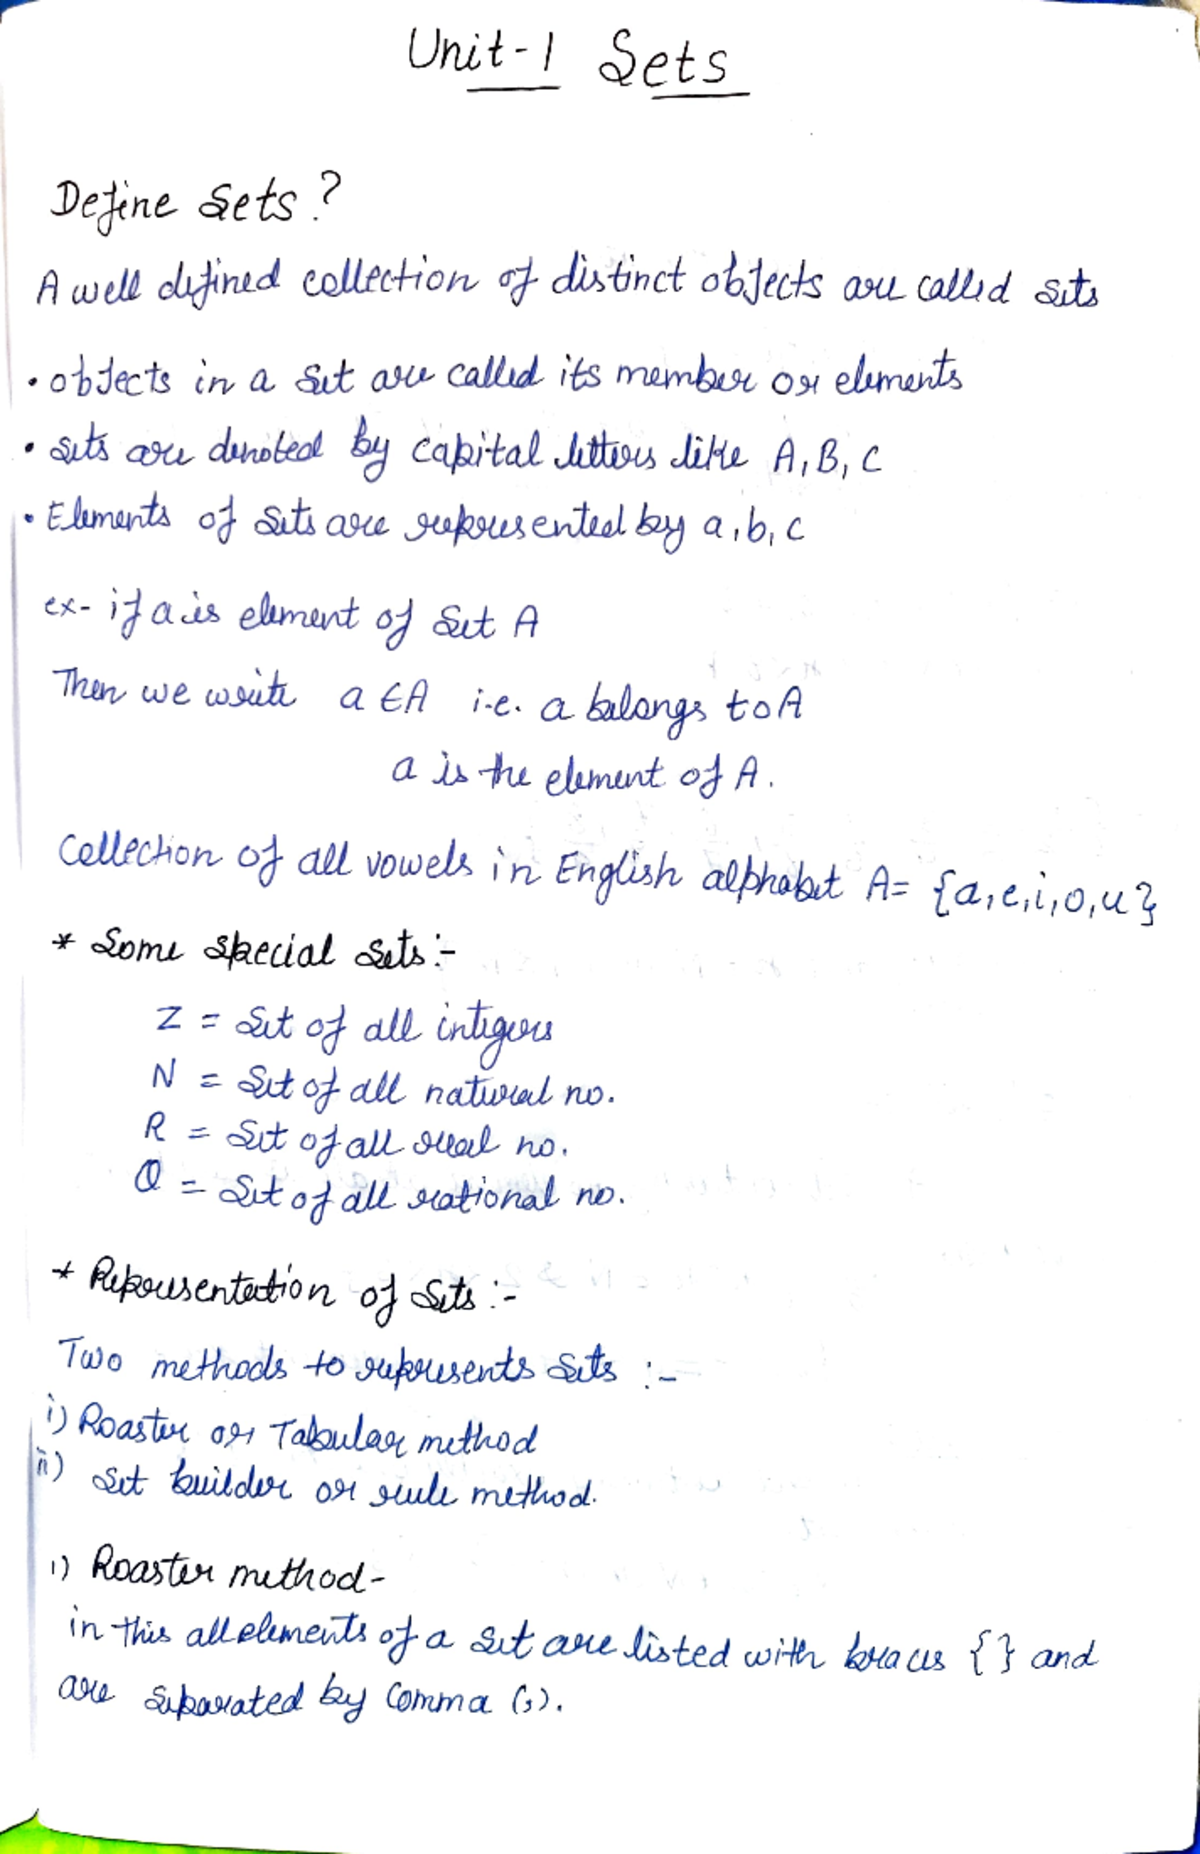 Unit-1 Sets
Define Sets?
A well defined collection of distinct objects are called sets
• objects in a set are called its member or elements
• sets are denoted by capital letters like A, B, C
• Elements of sets are represented by a, b, c
ex- if a is element of set A
Then we write a ∈ A i.e. a belongs to A
a is the element of A.
Collection of all vowels in English alphabet A= {a, e, i, o, u}
* Some special sets :-
Z = Set of all integers
N = Set of all natural no.
R = Set of all real no.
Q = Set of all rational no.
* Representation of sets :-
Two methods to represents sets :-
i) Roaster or Tabular method
ii) Set builder or rule method.
1) Roaster method-
in this all elements of a set are listed with braces { } and
are separated by comma (,).